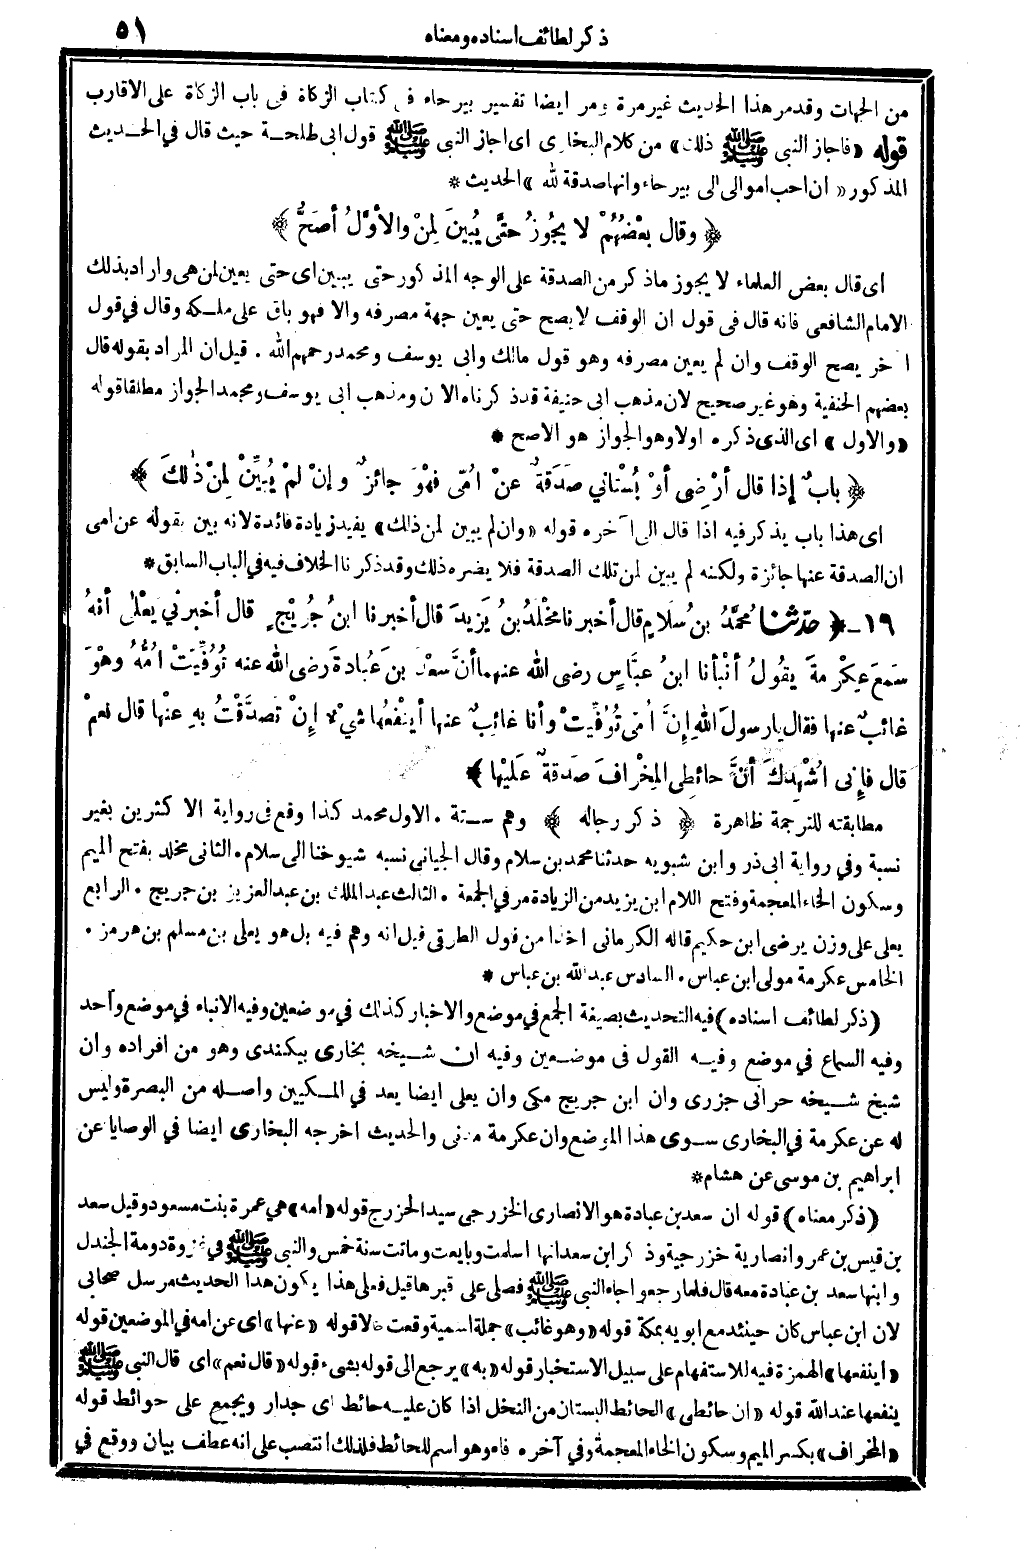 ذكر لطائف اسناده ومعناه ٥١
من الجهات وقد مر هذا الحديث غير مرة ومر ايضا تفسير بيرحاء فى كتاب الزكاة فى باب الزكاة على الاقارب
قوله «فاجاز النبى ﷺ ذلك» من كلام البخارى اى اجاز النبى ﷺ قول ابى طلحة حيث قال فى الحديث
المذكور «ان احب اموالى الى بيرحاء وانها صدقة لله» الحديث *
﴿ وقال بَعْضُهُمْ لا يجُوزُ حتَّى يُبَينَ لِمنْ والأوَّلُ أصَحُّ ﴾
اى قال بعض العلماء لا يجوز ما ذكر من الصدقة على الوجه المذكور حتى يبين اى حتى يعين لمن هى واراد بذلك
الامام الشافعى فانه قال فى قول ان الوقف لا يصح حتى يعين جهة مصرفه والا فهو باق على ملكه وقال فى قول
آخر يصح الوقف وان لم يعين مصرفه وهو قول مالك وابى يوسف ومحمد رحمهم الله . قيل ان المراد بقوله قال
بعضهم الحنفية وهو غير صحيح لان مذهب ابى حنيفة قد ذكرناه الآن ومذهب ابى يوسف ومحمد الجواز مطلقا قوله
«والاول» اى الذى ذكره اولا وهو الجواز هو الاصح *
﴿ بابٌ إذا قال أرْضِى أوْ بُسْتاني صَدَقةٌ عنْ اُمّى فهْوَ جائزٌ وإنْ لمْ يُبيِّنْ لِمنْ ذٰلكَ ﴾
اى هذا باب يذكر فيه اذا قال الى آخره قوله «وان لم يبين لمن ذلك» يفيد زيادة فائدة لانه بين بقوله عن امى
ان الصدقة عنها جائزة ولكنه لم يبين لمن تلك الصدقة فلا يضره ذلك وقد ذكرنا الخلاف فيه فى الباب السابق *
١٩ ـ ﴿ حدّثنا مُحمَّدُ بن سُلامٍ قال أخبرنا مَخْلَدُ بنُ يَزيدَ قال أخبرنا ابنُ جُرَيْجٍ قال أخبرني يَعْلٰى أنهُ
سَمَعَ عِكْرِمةَ يقُولُ أنْبأنا ابنُ عبَّاسٍ رضى الله عنهما أنَّ سعْدَ بنَ عُبادةَ رضى الله عنه تُوُفِّيَتْ اُمُّهُ وهْوَ
غائبٌ عنها فقال يا رسولَ اللهِ إنَّ اُمّى تُوُفِّيتْ وأنا غائبٌ عنها أينْفَعُها شىْءٌ إنْ تصَدَّقْتُ بهِ عنْها قال نعمْ
قال فإنى اُشْهِدُكَ أنَّ حائطِى المِخْرافَ صَدقةٌ عَلَيْها ﴾
مطابقته للترجمة ظاهرة ﴿ ذكر رجاله ﴾ وهم ستة . الاول محمد كذا وقع فى رواية الاكثرين بغير
نسبة وفى رواية ابى ذر وابن شبويه حدثنا محمد بن سلام وقال الجيانى نسبه شيوخنا الى سلام . الثانى مخلد بفتح الميم
وسكون الخاء المعجمة وفتح اللام ابن يزيد من الزيادة مر فى الجمعة . الثالث عبد الملك بن عبد العزيز بن جريج . الرابع
يعلى على وزن يرضى ابن حكيم قاله الكرمانى اخذا من قول الطرقى قيل انه وهم فيه بل هو يعلى بن مسلم بن هرمز .
الخامس عكرمة مولى ابن عباس . السادس عبد الله بن عباس *
(ذكر لطائف اسناده) فيه التحديث بصيغة الجمع فى موضع والاخبار كذلك فى موضعين وفيه الانباء فى موضع واحد
وفيه السماع فى موضع وفيه القول فى موضعين وفيه ان شيخه بخارى بيكندى وهو من افراده وان
شيخ شيخه حرانى جزرى وان ابن جريج مكى وان يعلى ايضا يعد فى المكيين واصله من البصرة وليس
له عن عكرمة فى البخارى سوى هذا الموضع وان عكرمة مدنى والحديث اخرجه البخارى ايضا فى الوصايا عن
ابراهيم بن موسى عن هشام *
(ذكر معناه) قوله ان سعد بن عبادة هو الانصارى الخزرجى سيد الخزرج قوله «امه» هى عمرة بنت مسعود وقيل سعد
بن قيس بن عمر وانصارية خزرجية وذكر ابن سعد انها اسلمت وبايعت وماتت سنة خمس والنبى ﷺ فى غزوة دومة الجندل
وابنها سعد بن عبادة معه قال فلما رجعوا جاء النبى ﷺ فصلى على قبرها قيل فعلى هذا يكون هذا الحديث مرسل صحابى
لان ابن عباس كان حينئذ مع ابويه بمكة قوله «وهو غائب» جملة اسمية وقعت حالا قوله «عنها» اى عن امه فى الموضعين قوله
«اينفعها» الهمزة فيه للاستفهام على سبيل الاستخبار قوله «به» يرجع الى قوله بشىء قوله «قال نعم» اى قال النبى ﷺ
ينفعها عند الله قوله «ان حائطى» الحائط البستان من النخل اذا كان عليه حائط اى جدار ويجمع على حوائط قوله
«المخراف» بكسر الميم وسكون الخاء المعجمة وفى آخره فاء وهو اسم للحائط فلذلك انتصب على انه عطف بيان ووقع فى